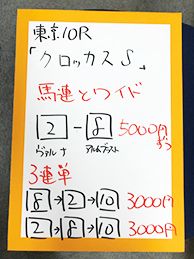 東京10R
「クロッカスS」
馬連とワイド
2-8 5000円ずつ
ヴァルナ アルムブラスト
3連単
8→2→10 3000円
2→8→10 3000円